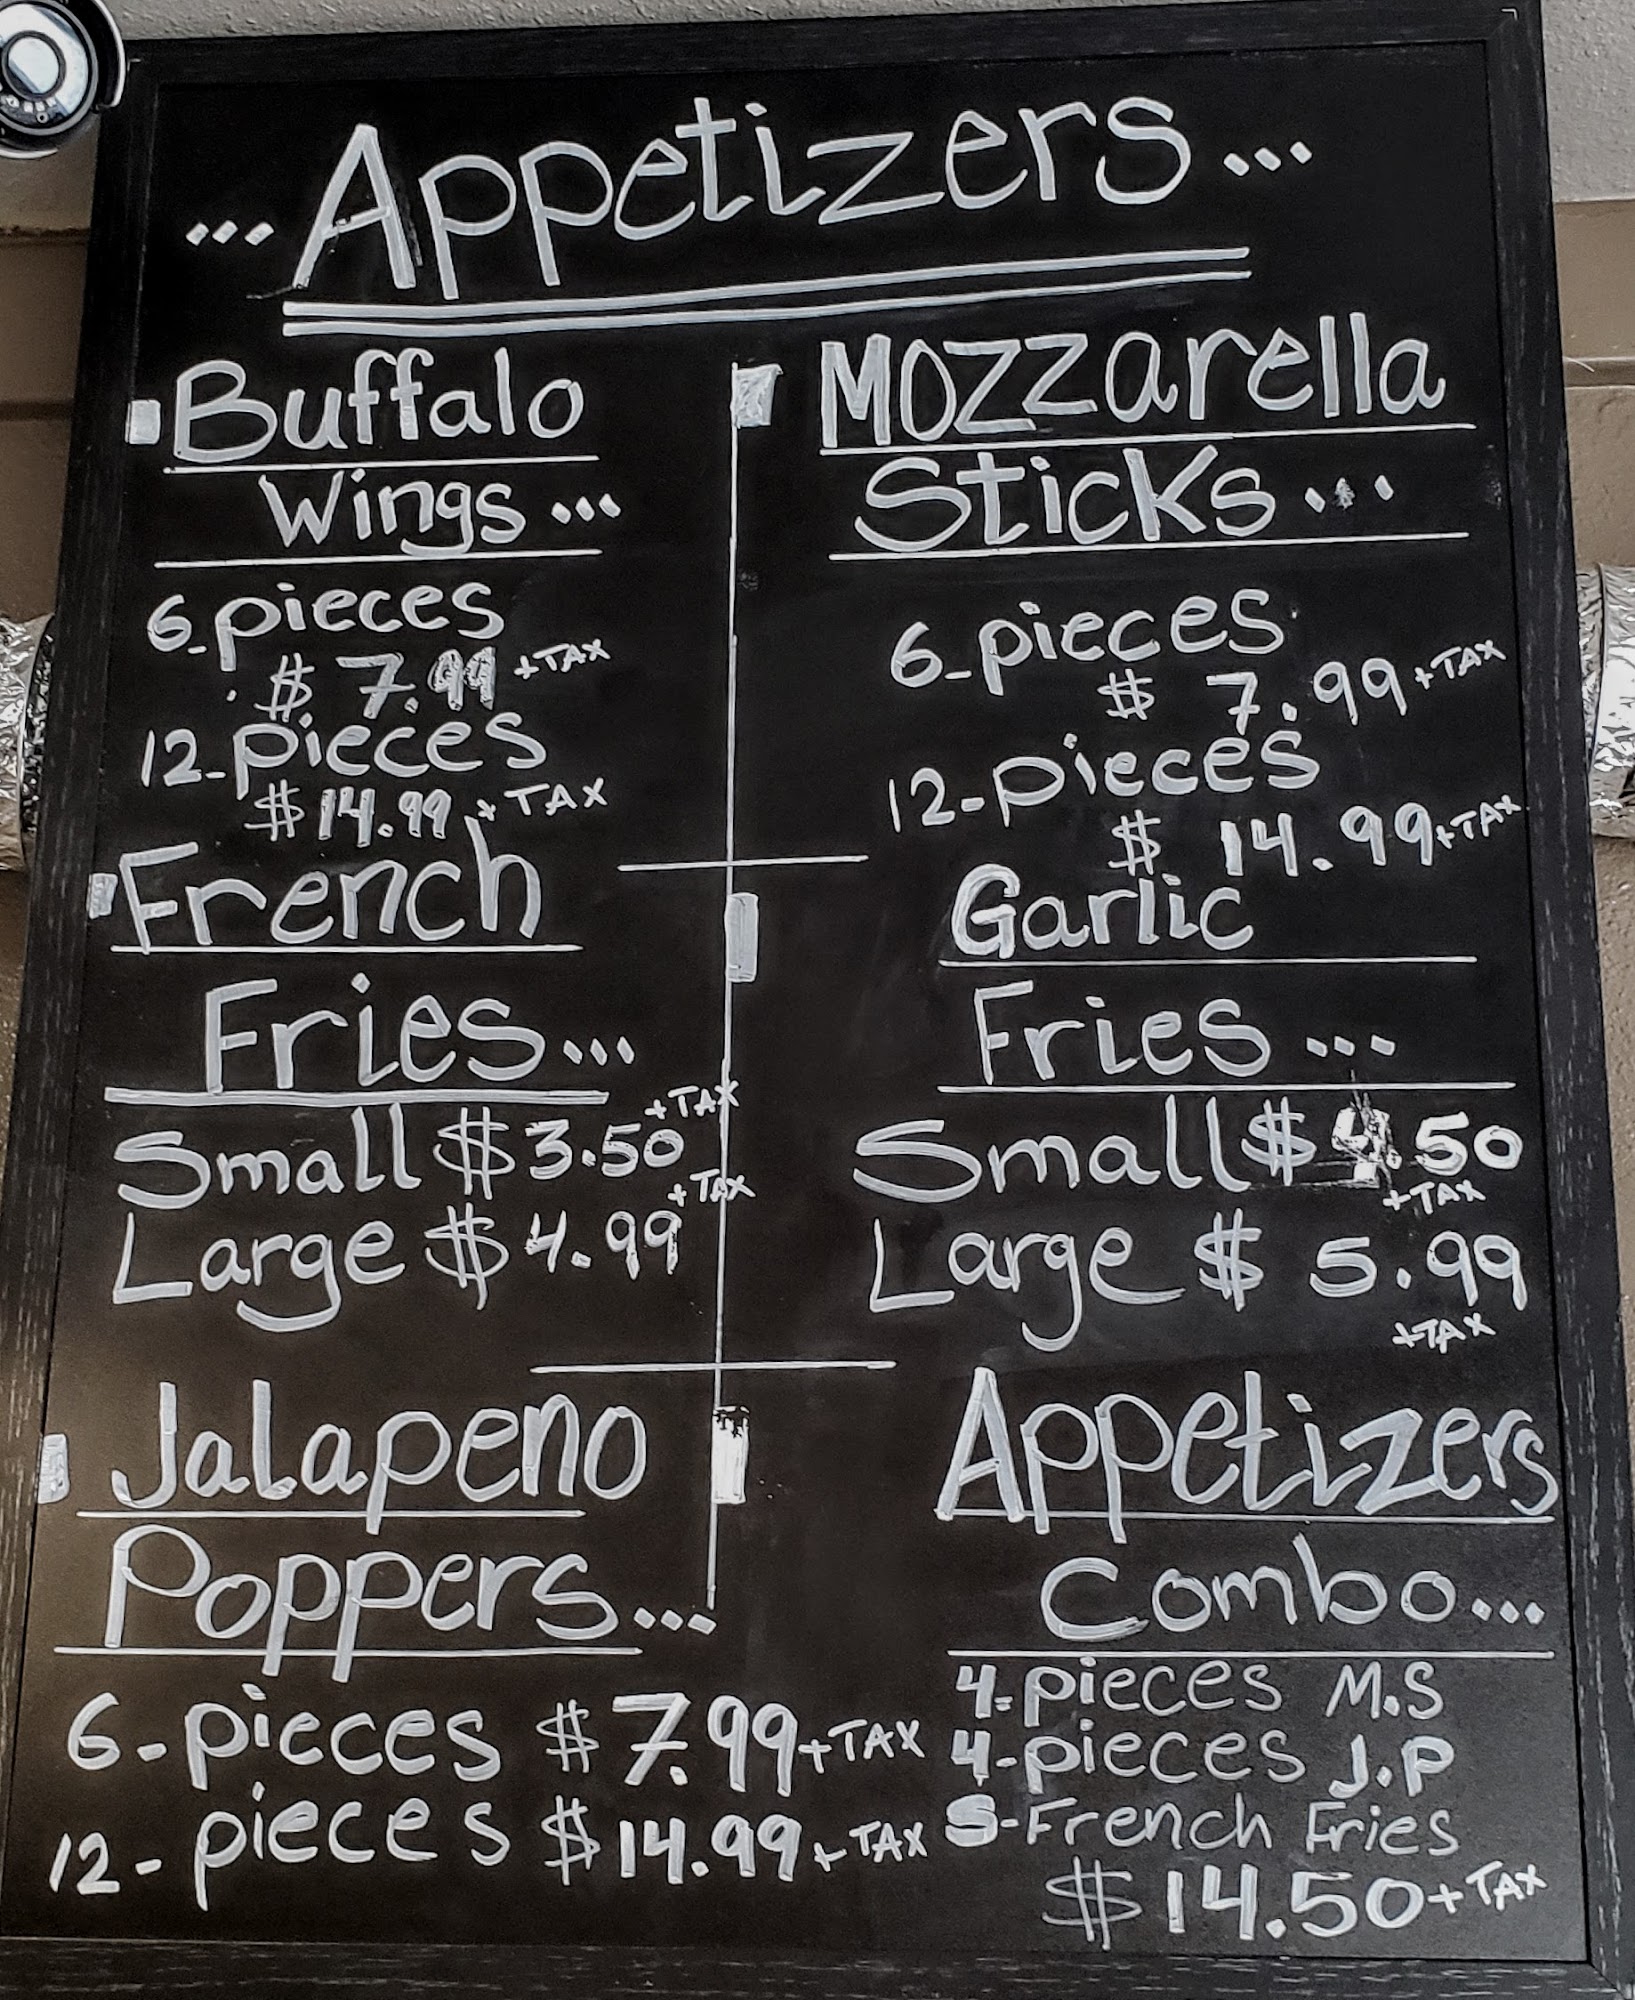 ...Appetizers...
Buffalo
Wings...
6-pieces
$7.99 +TAX
12-pieces
$14.99 + TAX
Mozzarella
Sticks...
6-pieces
$7.99 +TAX
12-pieces
$14.99 +TAX
French
Fries...
Small $3.50 +TAX
Large $4.99 +TAX
Garlic
Fries...
Small $4.50
+TAX
Large $5.99
+TAX
Jalapeno
Poppers...
6-pieces $7.99 +TAX
12-pieces $14.99 +TAX
Appetizers
Combo...
4-pieces M.S
4-pieces J.P
S-French Fries
$14.50 + TAX